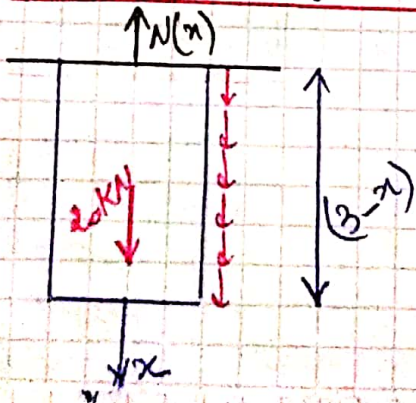 N(x)
20KN
(3-x)
x